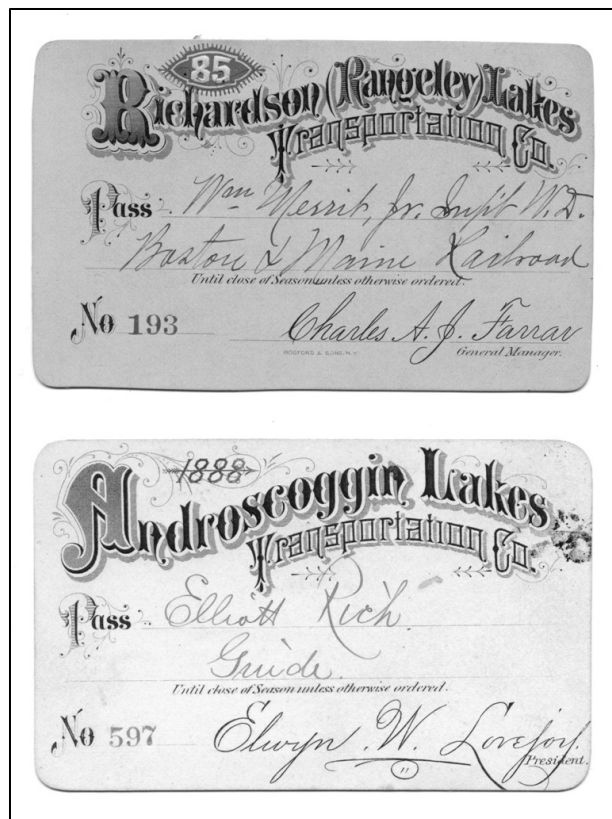 85
Richardson (Rangeley) Lakes
Transportation Co.
Pass Wm Merrit, Jr. Supt W.D.
Boston & Maine Railroad
Until close of Season unless otherwise ordered.
No 193 Charles A. J. Farrar
General Manager.
1888
Androscoggin Lakes
Transportation Co.
Pass Elliott Rich
Guide.
Until close of Season unless otherwise ordered.
No 597 Elwyn W. Lovejoy
President.